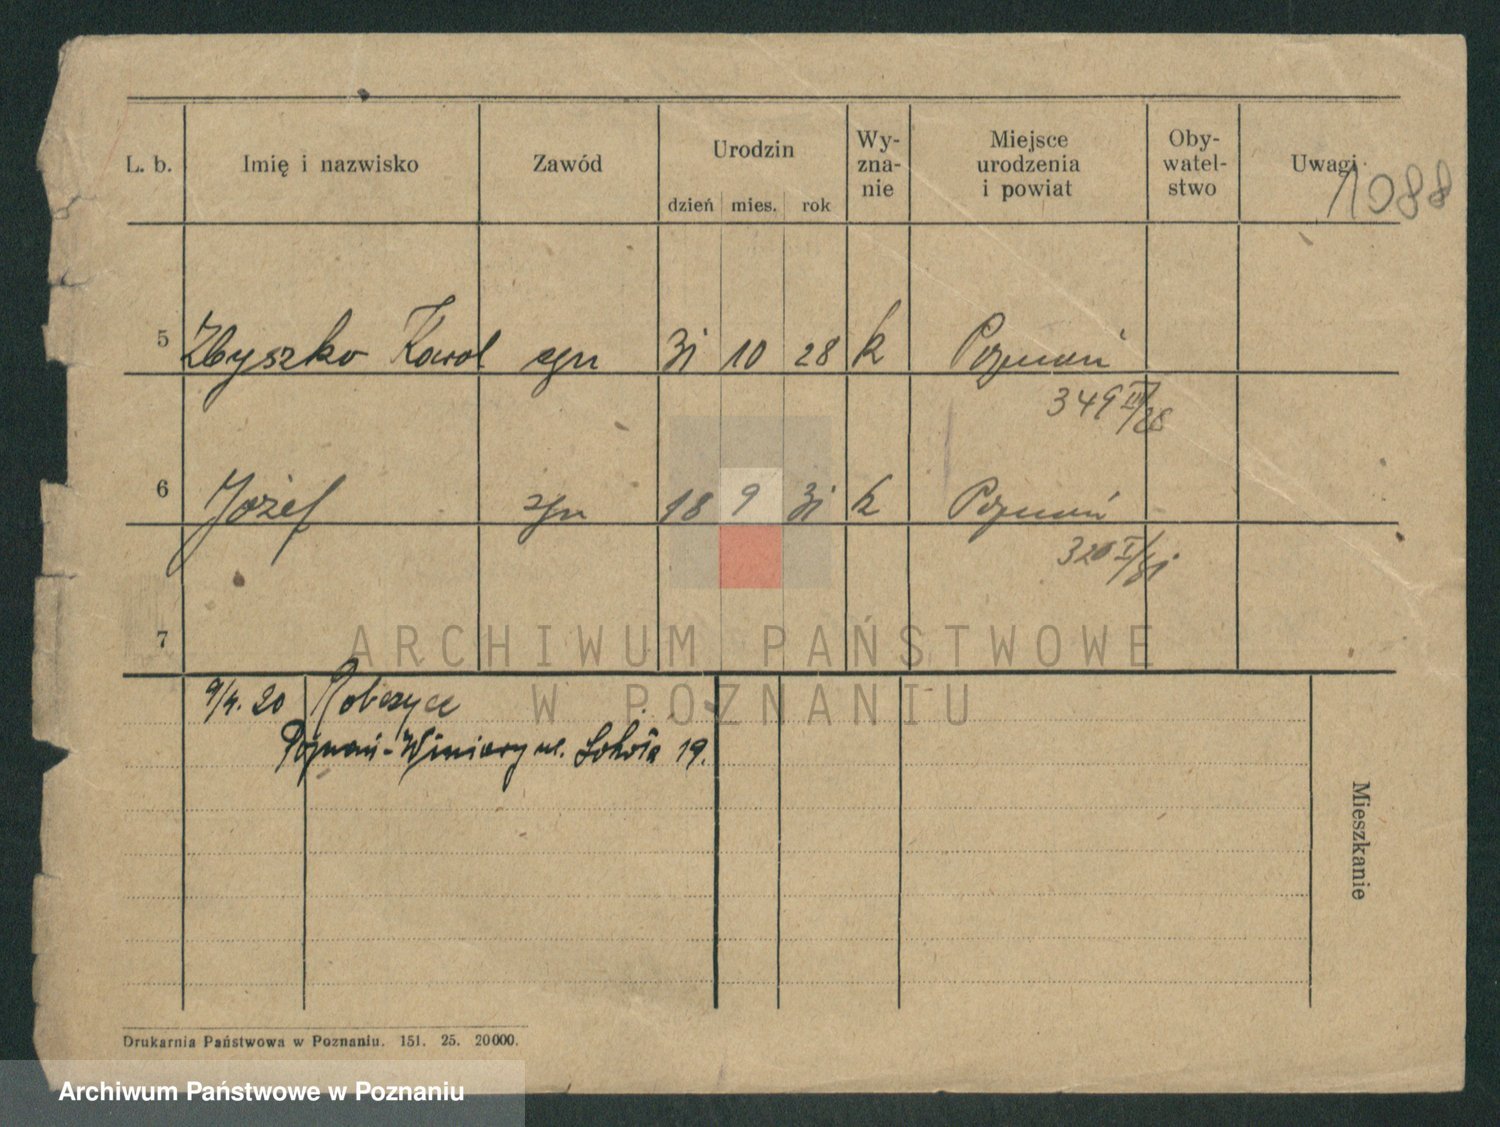 L. b. Imię i nazwisko Zawód Urodzin dzień mies. rok Wy-zna-nie Miejsce urodzenia i powiat Oby-watel-stwo Uwagi
1088
5 Zbyszko Karol syn 31 10 28 k Poznań
349 III/28
6 Józef syn 18 9 31 k Poznań
320 I/31
7
ARCHIWUM PAŃSTWOWE
W POZNANIU
9/4. 20
Poznań-Winiary ul. Sokoła 19.
Mieszkanie
Drukarnia Państwowa w Poznaniu. 151. 25. 20000.
Archiwum Państwowe w Poznaniu